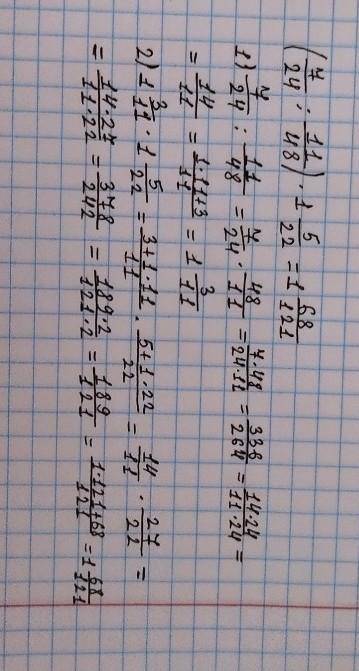 (7/24 : 11/48) · 1 5/22 = 1 68/121
1) 7/24 : 11/48 = 7/24 · 48/11 = 7·48/24·11 = 336/264 = 14·24/11·24 =
= 14/11 = 1·11+3/11 = 1 3/11
2) 1 3/11 · 1 5/22 = 3+1·11/11 · 5+1·22/22 = 14/11 · 27/22 =
= 14·27/11·22 = 378/242 = 189·2/121·2 = 189/121 = 1·121+68/121 = 1 68/121